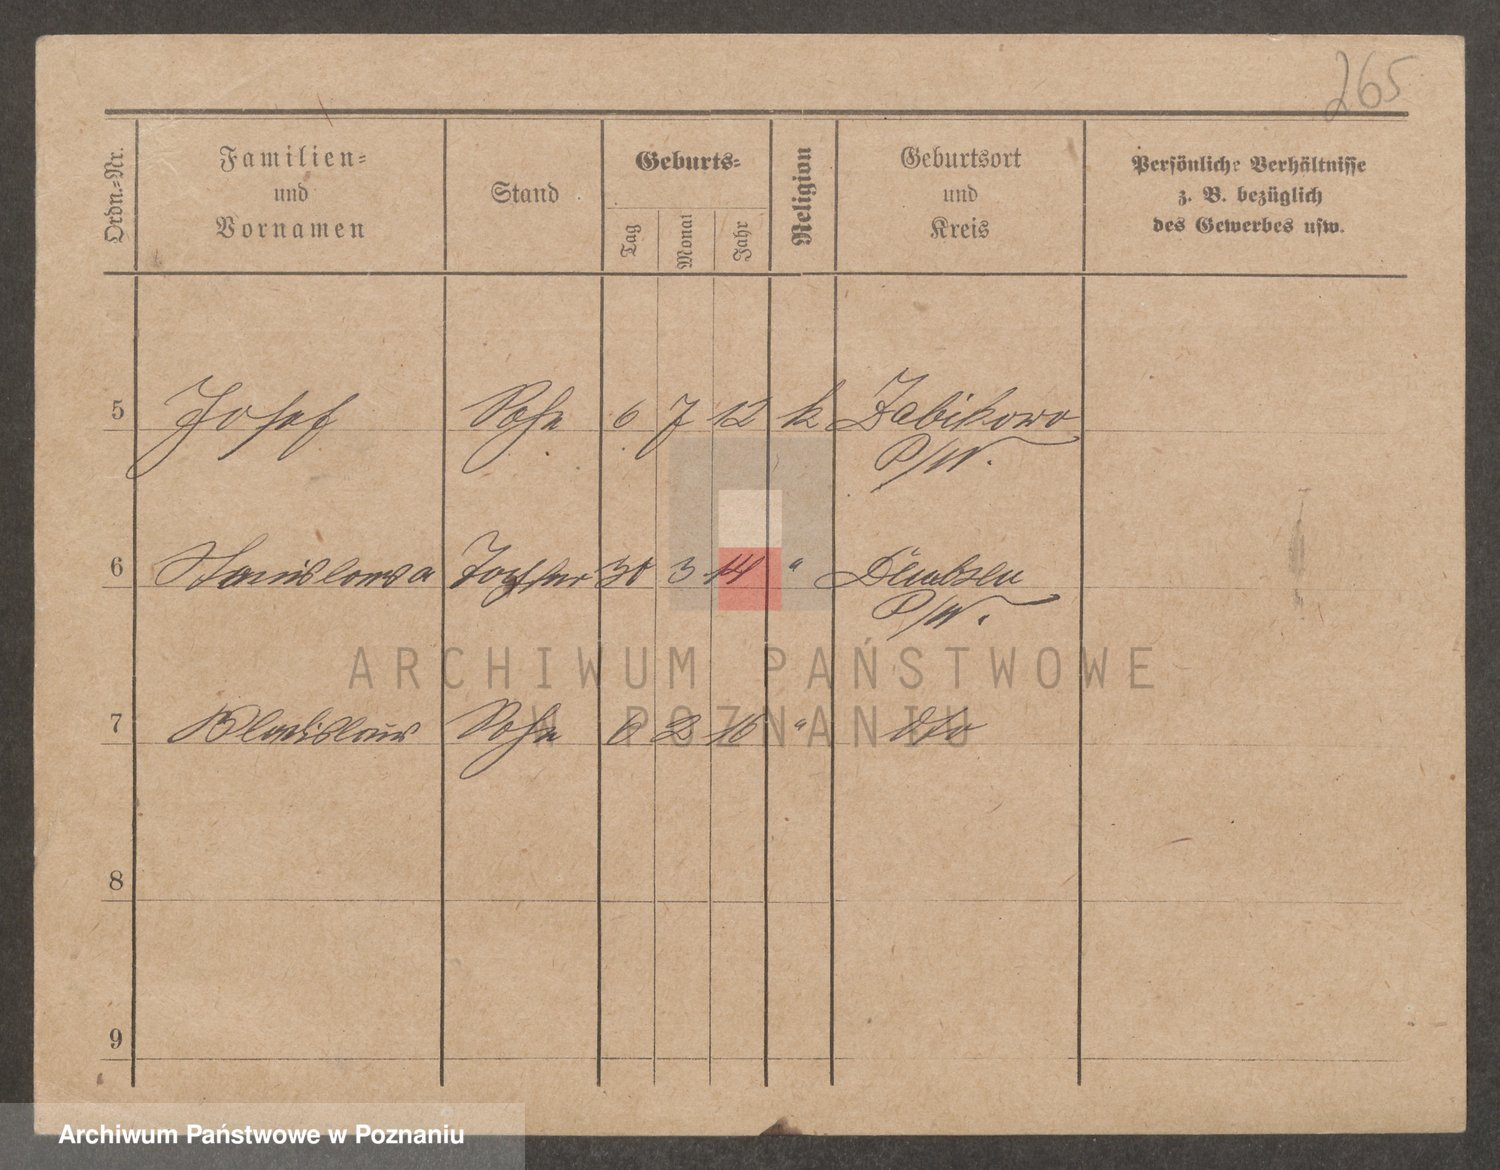 265
Ordn.-Nr.
Familien-
und
Vornamen
Stand
Geburts-
Tag
Monat
Jahr
Religion
Geburtsort
und
Kreis
Persönliche Verhältnisse
z. B. bezüglich
des Gewerbes usw.
5 Josef Sohn 6 7 12 k Zabikowo
P/W.
6 Stanislawa Tochter 30 3 14 " Dembsen
P/W.
7 Sohn 6 2 16 " dto
8
9
ARCHIWUM PAŃSTWOWE
W POZNANIU
Archiwum Państwowe w Poznaniu